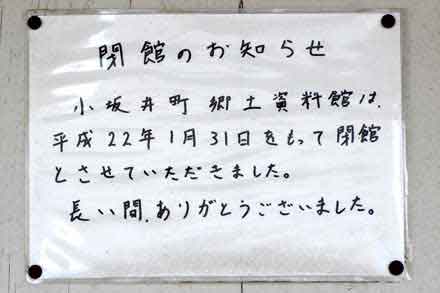 閉館のお知らせ
小坂井町郷土資料館は、
平成22年1月31日をもって閉館
とさせていただきました。
長い間、ありがとうございました。